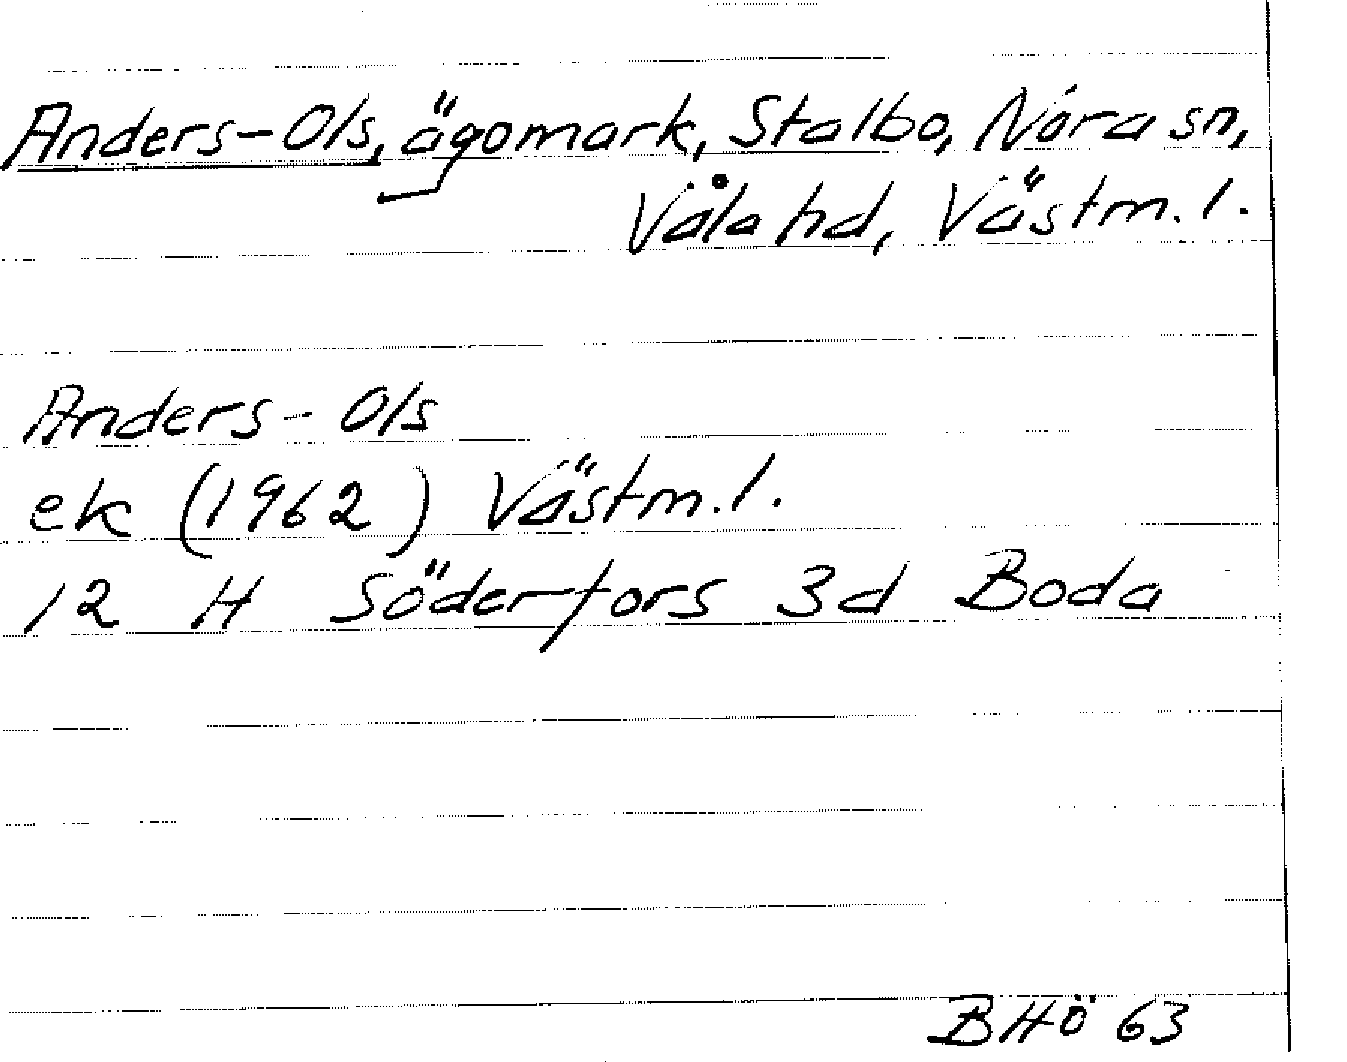 Anders-Ols, ägomark, Stalbo, Nora sn,
Våla hd, Västm. l.
Anders-Ols
ek (1962) Västm. l.
12 H Söderfors 3d Boda
BHÖ 63